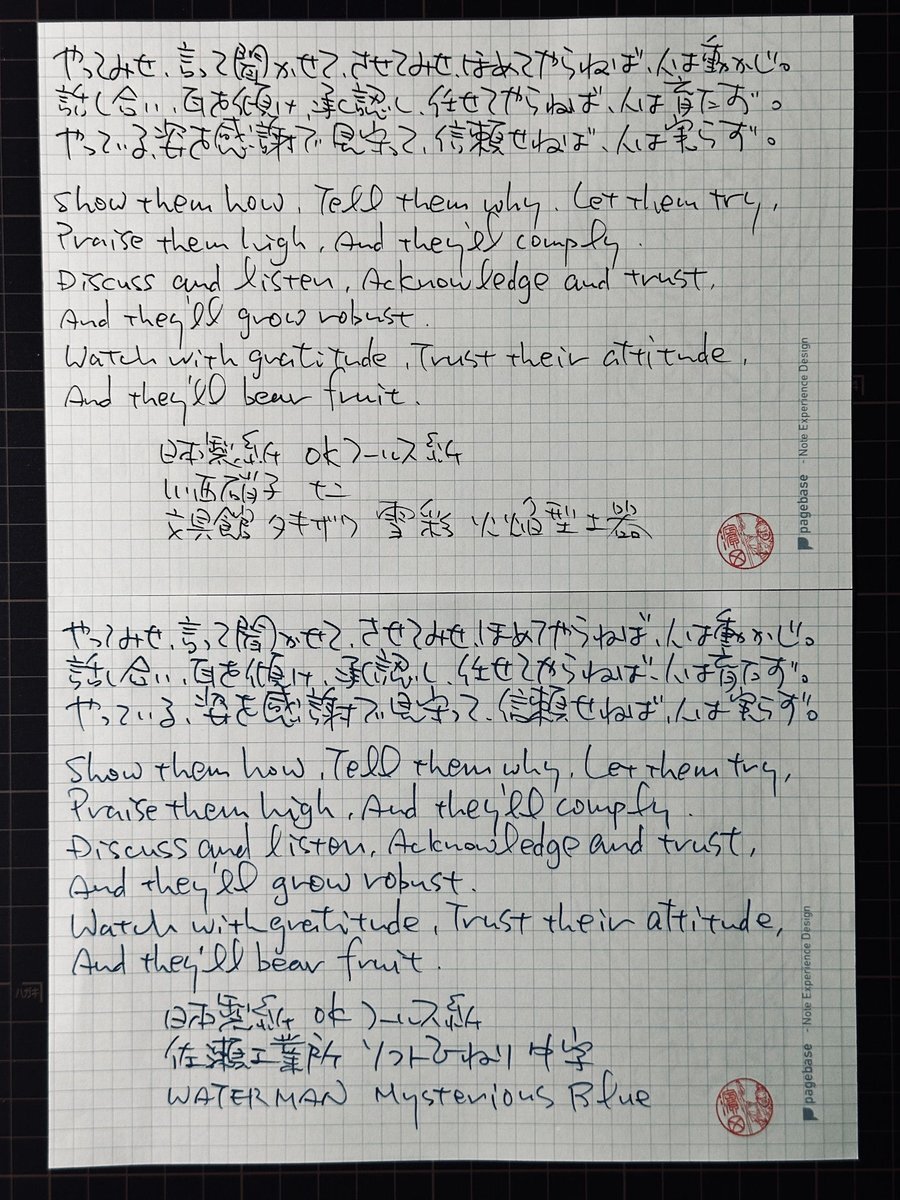 やってみせ、言って聞かせて、させてみせ、ほめてやらねば、人は動かじ。
話し合い、耳を傾け、承認し、任せてやらねば、人は育たず。
やっている、姿を感謝で見守って、信頼せねば、人は実らず。
Show them how, Tell them why, Let them try,
Praise them high, And they'll comply.
Discuss and listen, Acknowledge and trust,
And they'll grow robust.
Watch with gratitude, Trust their attitude,
And they'll bear fruit.
日本製紙 OKフールス紙
川西硝子 セニ
文具館タキザワ 雪彩 火焔型土器
pagebase - Note Experience Design
やってみせ、言って聞かせて、させてみせ、ほめてやらねば、人は動かじ。
話し合い、耳を傾け、承認し、任せてやらねば、人は育たず。
やっている、姿を感謝で見守って、信頼せねば、人は実らず。
Show them how, Tell them why, Let them try,
Praise them high, And they'll comply.
Discuss and listen, Acknowledge and trust,
And they'll grow robust.
Watch with gratitude, Trust their attitude,
And they'll bear fruit.
日本製紙 OKフールス紙
佐瀬工業所 ソフトひねり 中字
WATERMAN Mysterious Blue
pagebase - Note Experience Design
ハガキ